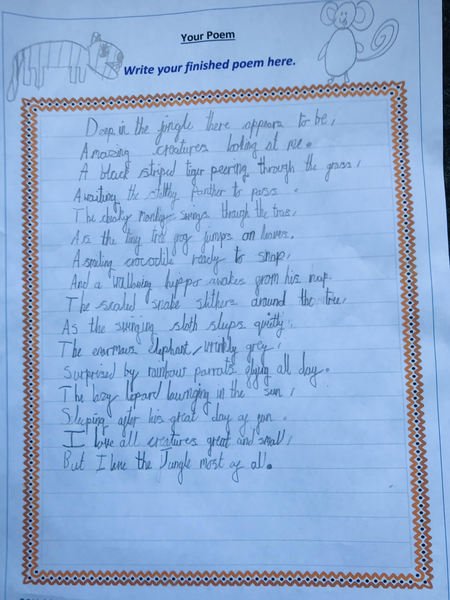 Your Poem
Write your finished poem here.
Deep in the jungle there appears to be,
Amazing creatures looking at me.
A black striped tiger peering through the grass,
Awaiting the panther to pass.
The cheeky monkey swings through the trees,
As the tiny tree frog jumps on leaves.
A smiling crocodile ready to snap,
And a wallowing hippo awakes from his nap.
The scaled snake slithers around the tree,
As the swinging sloth sleeps quietly,
The enormous elephant, wrinkly grey,
Surprised by rainbow parrots flying all day.
The lazy lepard lounging in the sun,
Sleeping after his great day of fun.
I love all creatures great and small,
But I love the Jungle most of all.